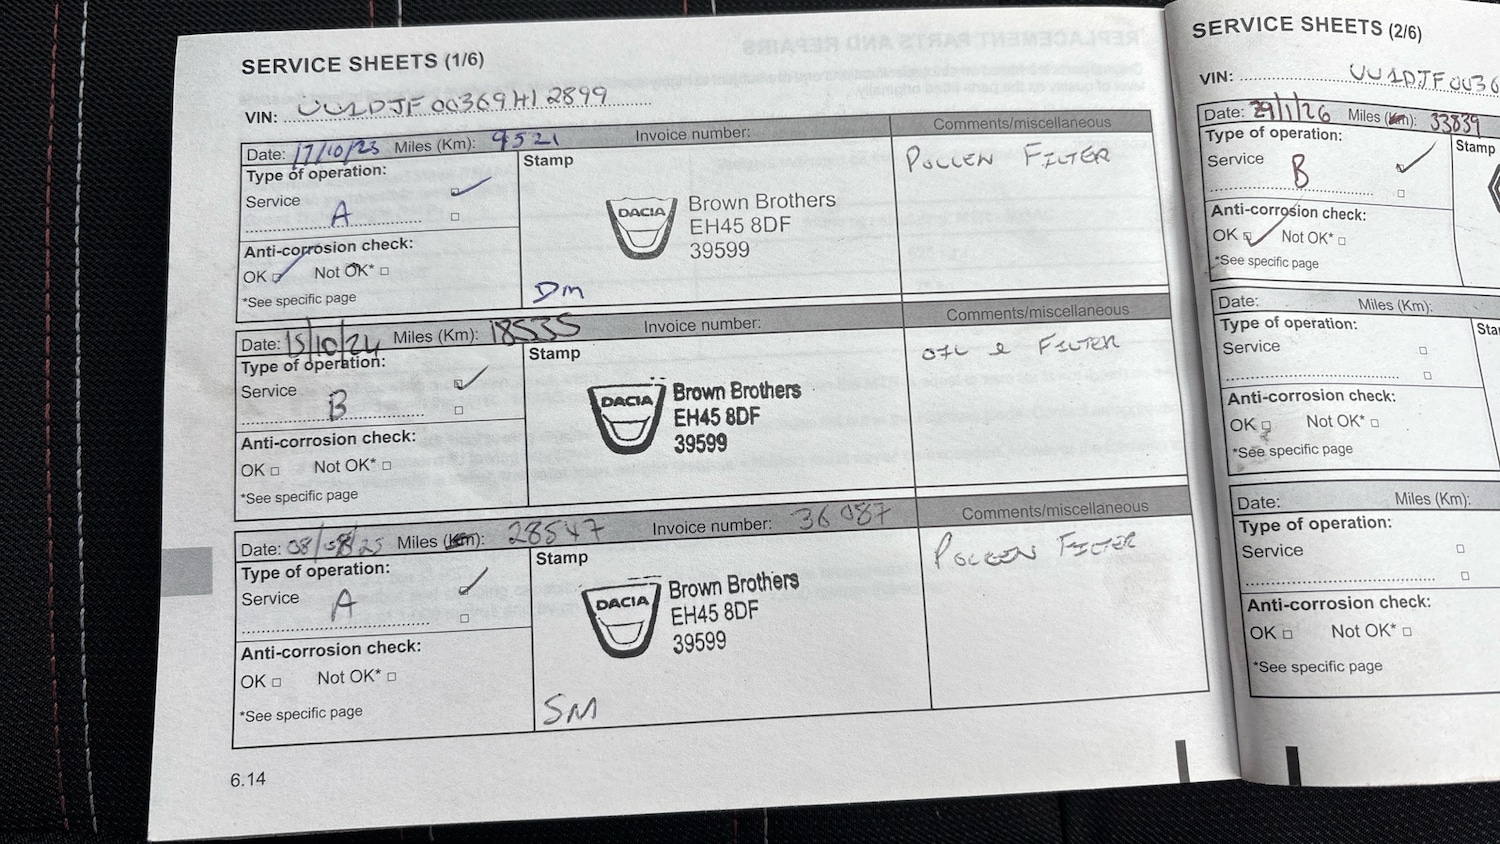 SERVICE SHEETS (1/6)
VIN: UU1DJF00369H12899
Date: 17/10/23 Miles (Km): 9521 Invoice number: Comments/miscellaneous
Type of operation:
Service
A
Anti-corrosion check:
OK Not OK*
*See specific page
Stamp
DACIA
Brown Brothers
EH45 8DF
39599
Dm
POLLEN FILTER
Date: 15/10/24 Miles (Km): 18535 Invoice number: Comments/miscellaneous
Type of operation:
Service
B
Anti-corrosion check:
OK Not OK*
*See specific page
Stamp
DACIA
Brown Brothers
EH45 8DF
39599
OIL & FILTER
Date: 08/08/25 Miles (Km): 28547 Invoice number: 36087 Comments/miscellaneous
Type of operation:
Service
A
Anti-corrosion check:
OK Not OK*
*See specific page
Stamp
DACIA
Brown Brothers
EH45 8DF
39599
SM
POLLEN FILTER
6.14
SERVICE SHEETS (2/6)
VIN: UU1DJF0036
Date: 29/1/26 Miles (Km): 33839
Type of operation:
Service
B
Anti-corrosion check:
OK Not OK*
*See specific page
Stamp
Date: Miles (Km):
Type of operation:
Service
Anti-corrosion check:
OK Not OK*
*See specific page
Sta
Date: Miles (Km):
Type of operation:
Service
Anti-corrosion check:
OK Not OK*
*See specific page